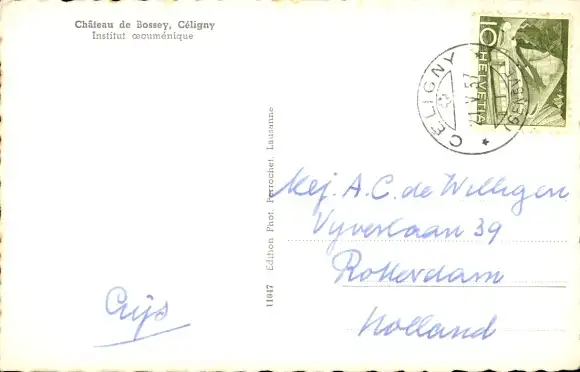 Château de Bossey, Céligny
Institut œcuménique
10
HELVETIA
CÉLIGNY
21.V.57
(GENÈVE)
11047 Edition Phot. Perrochet, Lausanne
Mej. A.C. de Willigen
Vijverlaan 39
Rotterdam
Holland